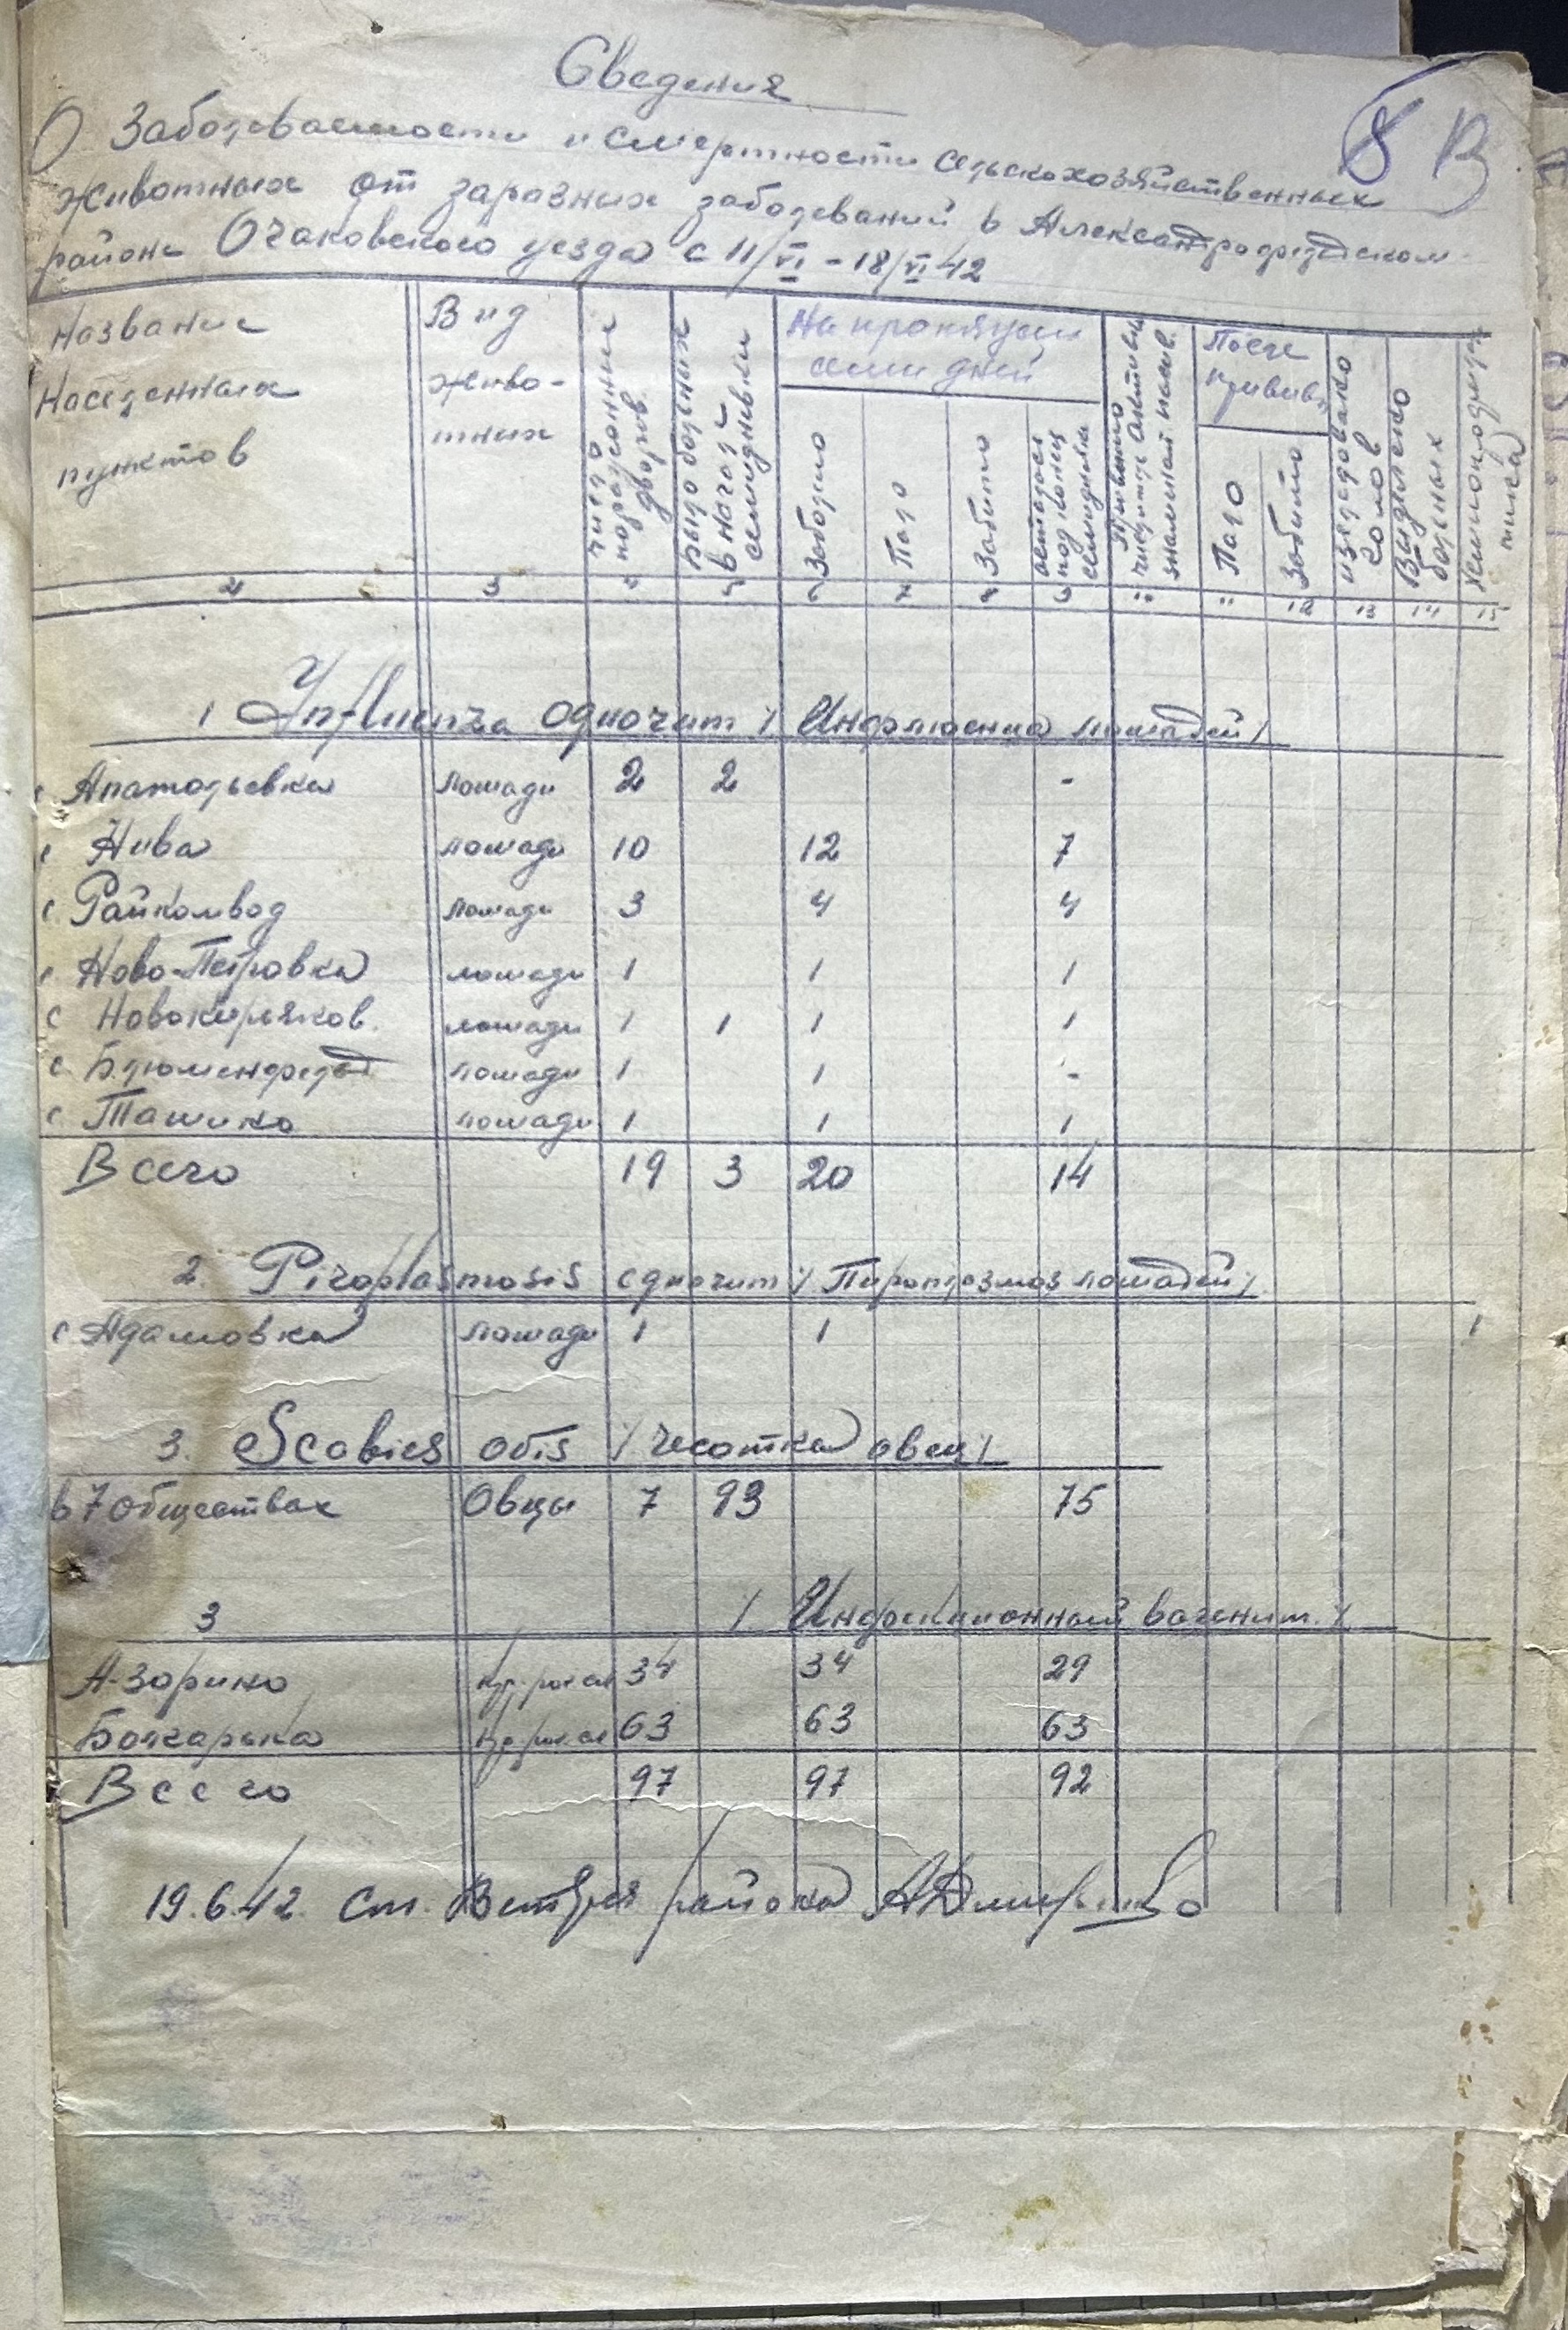 Сведения
8 В
О Заболеваемости и смертности сельскохозяйственных
животных от заразных заболеваний в Александрофельдском
районе Очаковского уезда с 11/VI - 18/VI 42
Название Населенных пунктов
Вид живо-тных
число пораженных дворов
Было больных в начале семидневки
На протяжен семи дней
Заболело
Пало
Забито
осталось под конец семидневки
После прививк
Пало
Забито
изследовано голов
Выделено больных
2 3 4 5 6 7 8 9 10 11 12 13 14 15
1 Influenza equorum / Инфлюенца лошадей /
с Анатольевка лошади 2 2 -
с Нива лошади 10 12 7
с. Райколвод лошади 3 4 4
с Ново-Петровка лошади 1 1 1
с Новокирьяков. лошади 1 1 1 1
с Блюменфельд лошади 1 1 -
с Ташино лошади 1 1 1
Всего 19 3 20 14
2. Piroplasmosis equorum / Пироплазмоз лошадей /
с Адамовка лошади 1 1 1
3. Scabies ovis / чесотка овец /
в 7 обществах Овцы 7 93 75
3 / Инфекционный вагенит. /
А-Зорино кр. рог. ск 34 34 29
Болгарка кр. рог. ск 63 63 63
Всего 97 97 92
19.6.42. Ст. Ветврач района